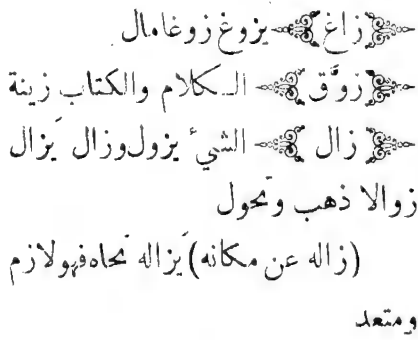 ﴿زاغ﴾ يزوغ زوغا مال
﴿زوَّق﴾ الكلام والكتاب زينة
﴿زال﴾ الشيءُ يزول وزال يَزال
زوالا ذهب وتحول
(زاله عن مكانه) يَزاله نحاه فهو لازم
ومتعد